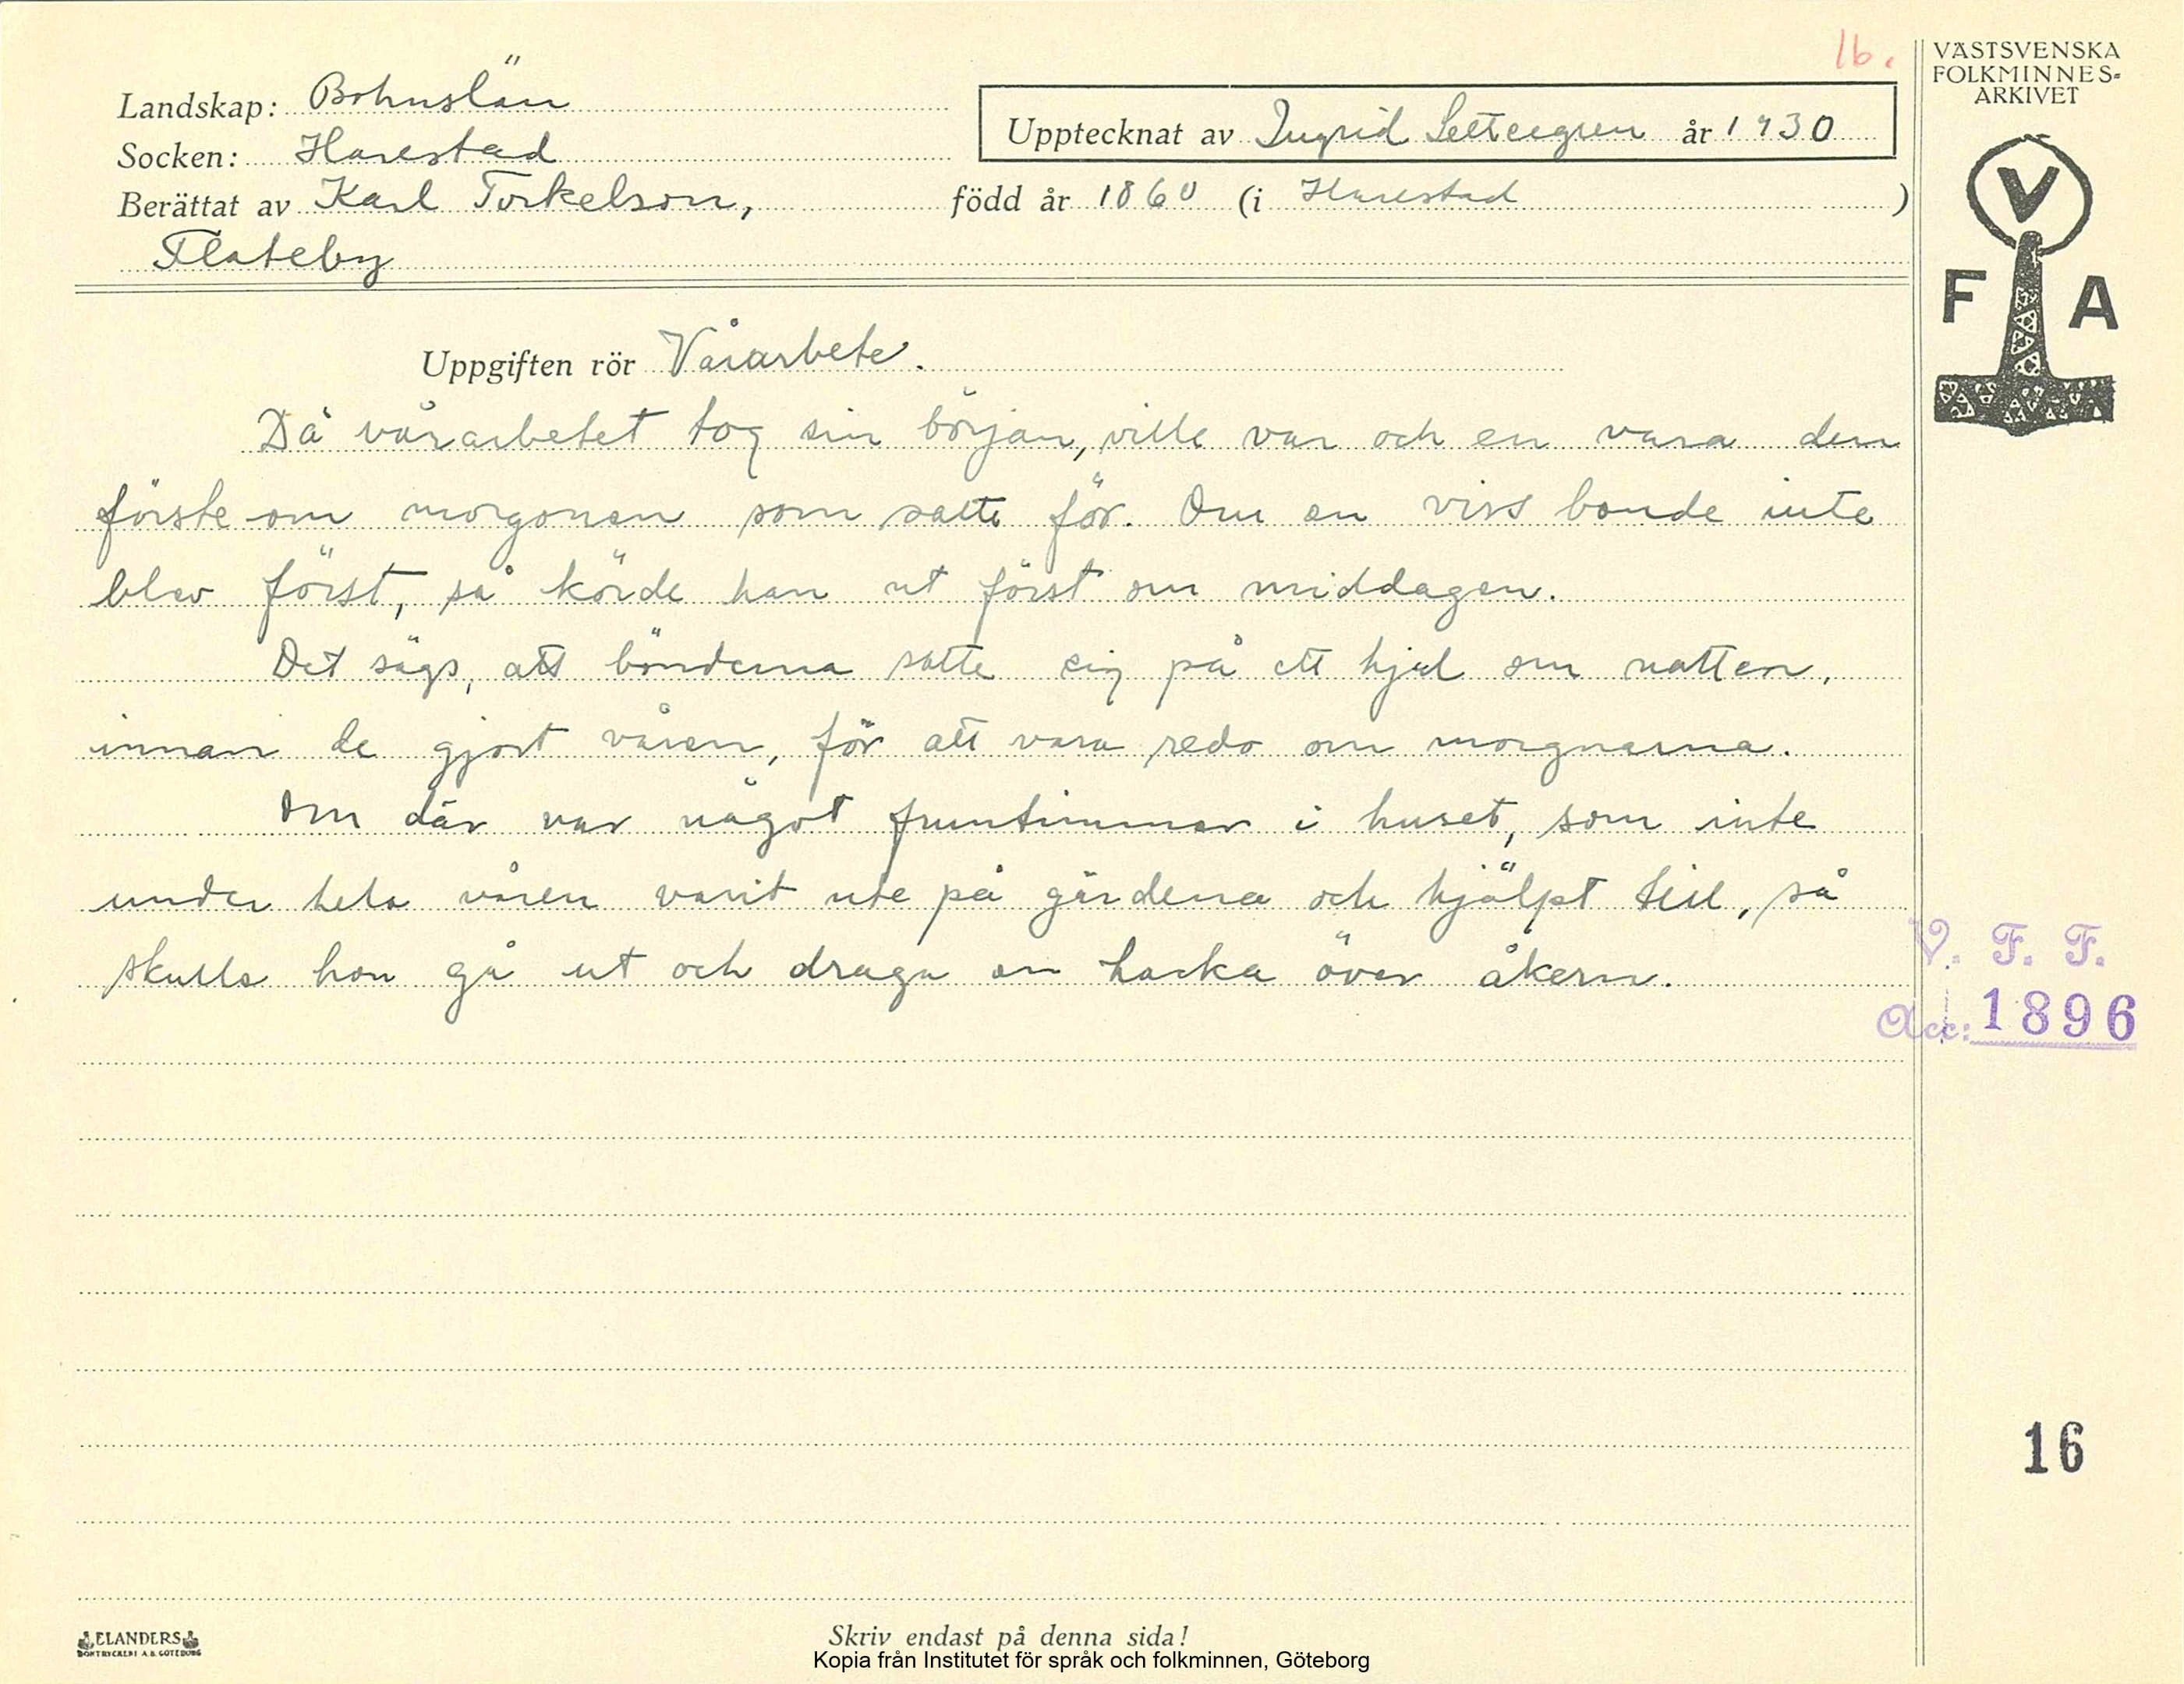 16.
VÄSTSVENSKA
FOLKMINNES-
ARKIVET
V
F A
Landskap: Bohuslän
Socken: Harestad
Upptecknat av Ingrid år 1930
Berättat av Karl Torkelson, född år 1860 (i Harestad )
Flateby
Uppgiften rör Vårarbete.
Då vårarbetet tog sin början, ville var och en vara den
förste om morgonen som satte för. Om en viss bonde inte
blev först, så körde han ut först om middagen.
Det sägs, att bönderna satte sig på ett hjul om natten,
innan de gjort våren, för att vara redo om morgnarna.
Om där var något fruntimmer i huset, som inte
under hela våren varit ute på gärdena och hjälpt till, så
skulle hon gå ut och draga en hacka över åkern.
V. F. F.
Acc: 1896
16
ELANDERS
BOKTRYCKERI A.B. GÖTEBORG
Skriv endast på denna sida!
Kopia från Institutet för språk och folkminnen, Göteborg